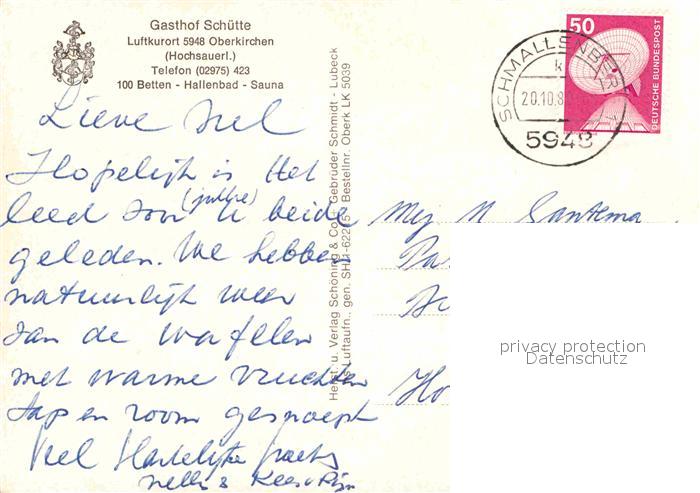 Gasthof Schütte
Luftkurort 5948 Oberkirchen
(Hochsauerl.)
Telefon (02975) 423
100 Betten - Hallenbad - Sauna
50
DEUTSCHE BUNDESPOST
SCHMALLENBERG 1
k
20.10.8
5948
Lieve Nel
Hopelijk is het
leed van (jullie) u beide
geleden. We hebben
natuurlijk weer
van de wafelen
met warme vruchten
en room gesnoept
Veel Hartelijke groet
Nellis Kees
Mej N Santema
Ho
Herst. u. Verlag Schöning & Co + Gebrüder Schmidt - Lübeck
Luftaufn., gen. Bestellnr. Oberk LK 5039
privacy protection
Datenschutz